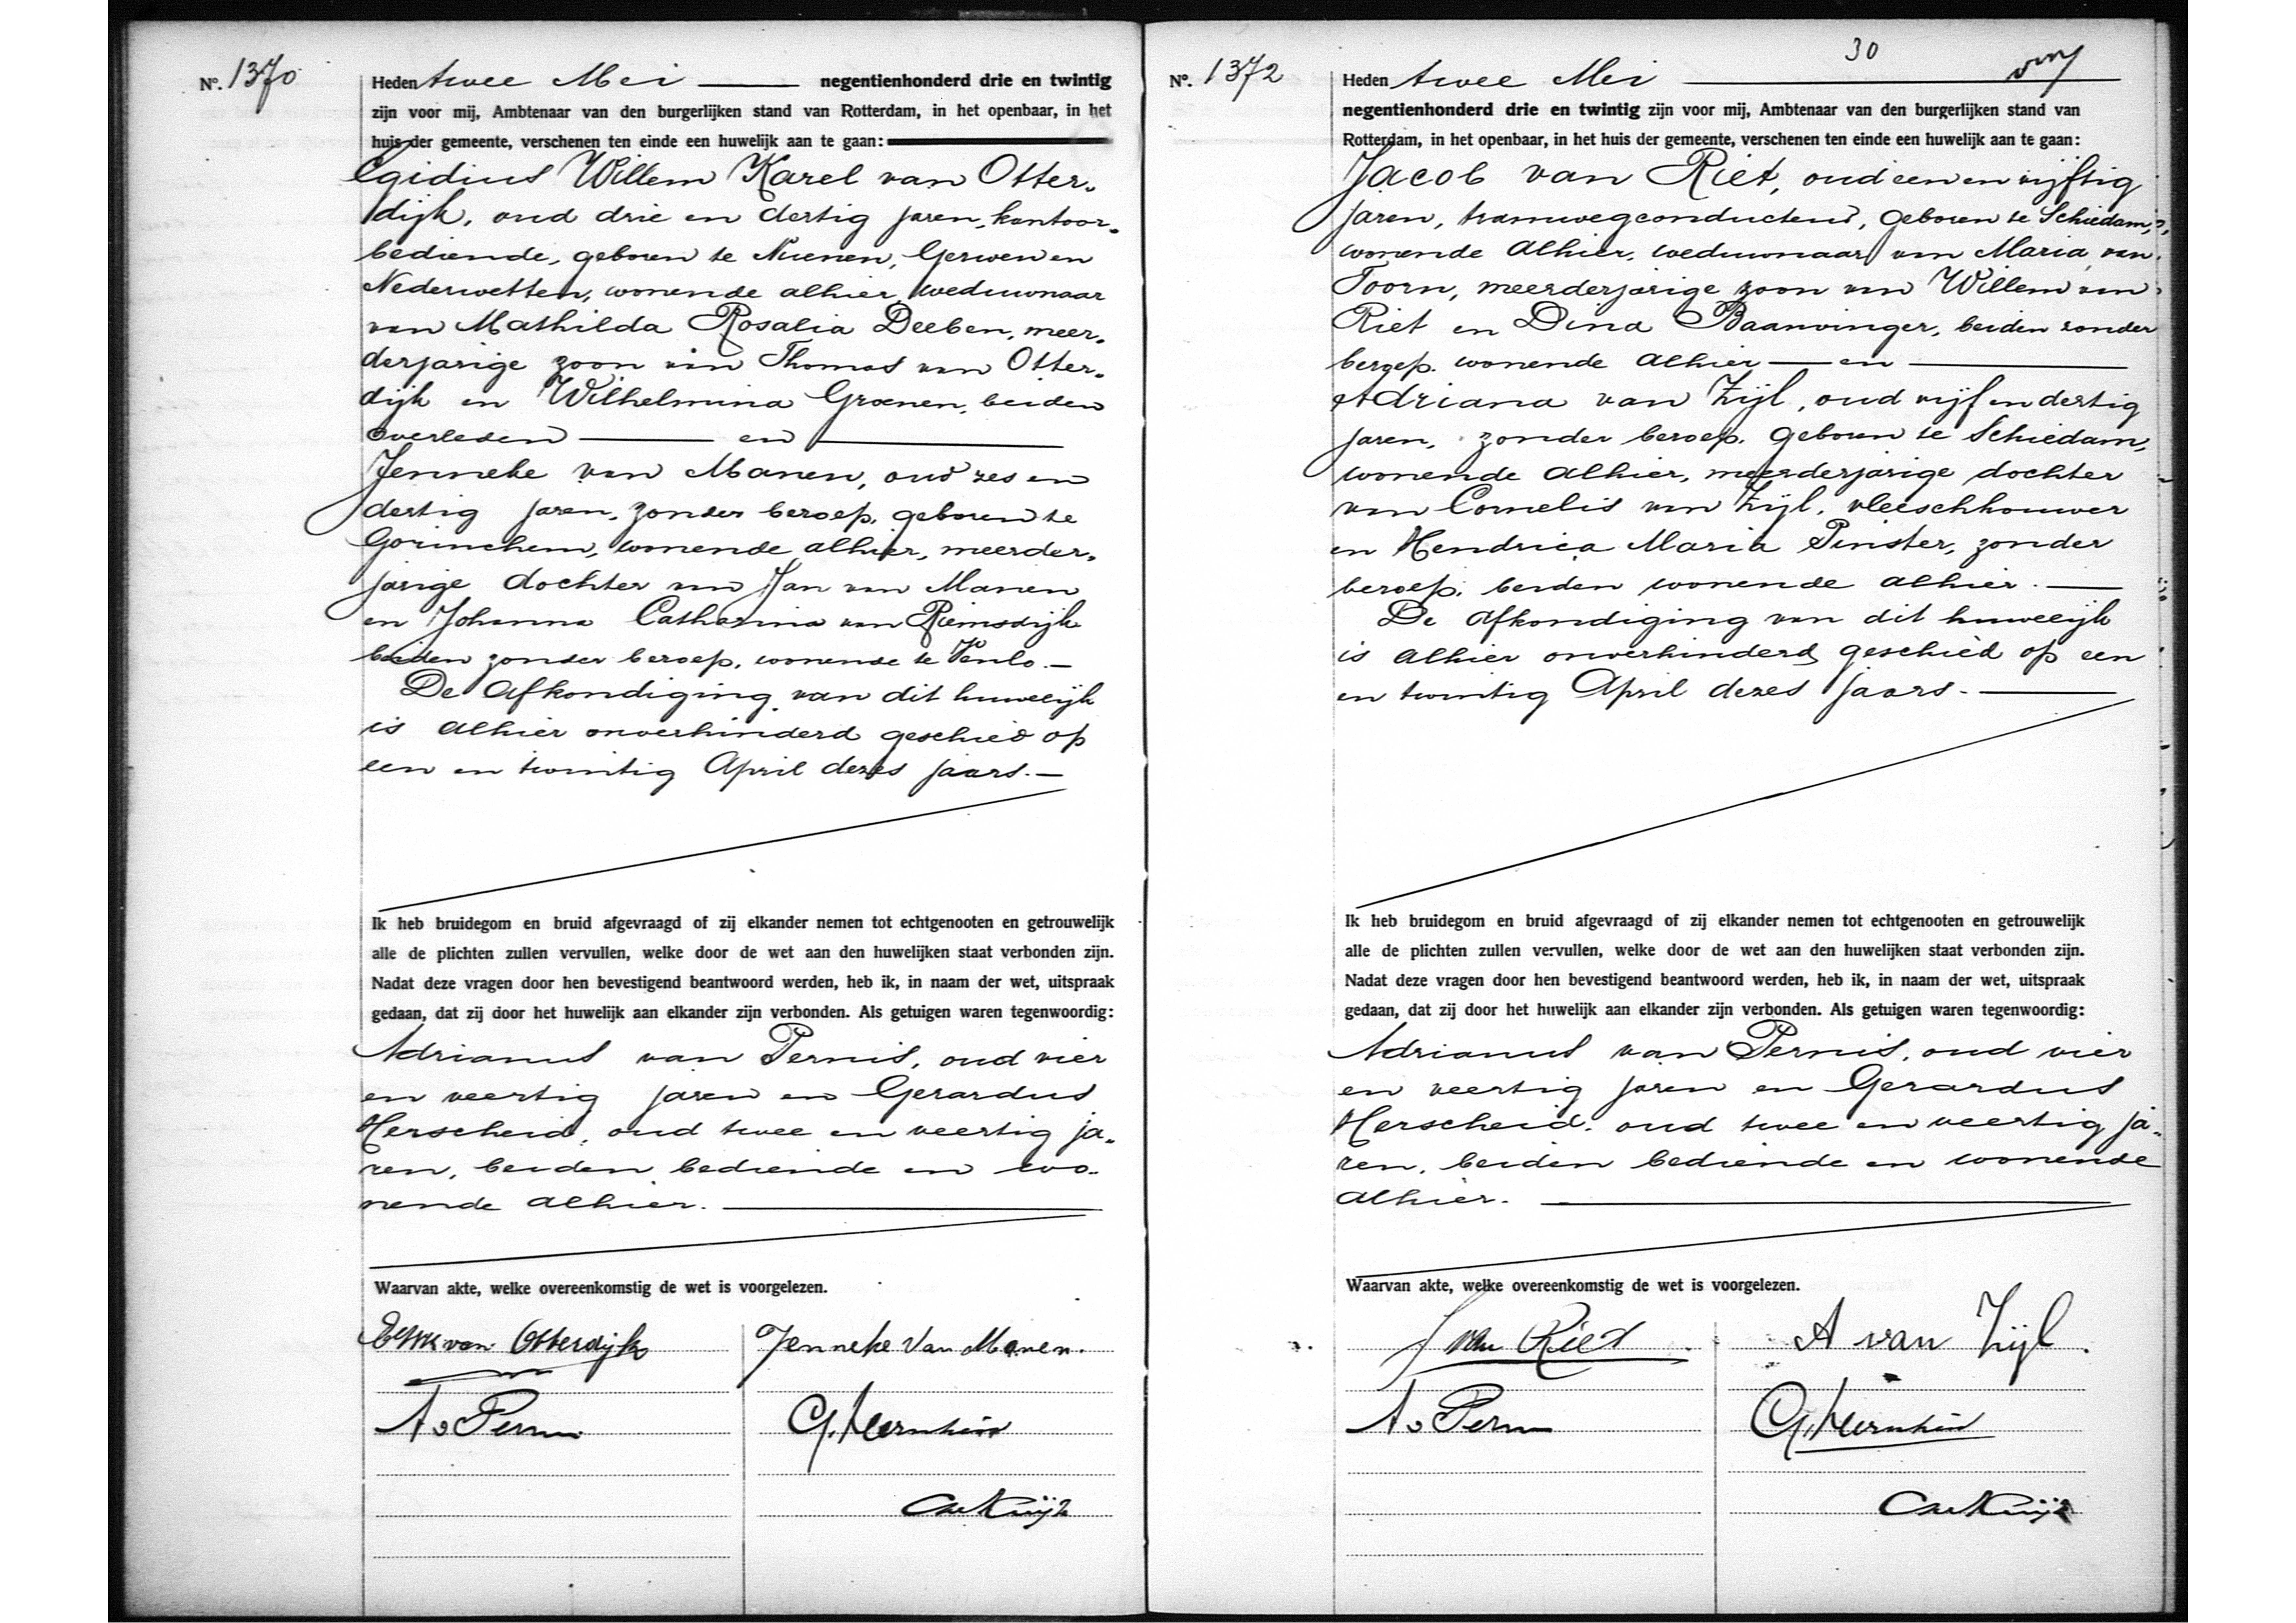 Nº. 1370
Heden twee Mei negentienhonderd drie en twintig
zijn voor mij, Ambtenaar van den burgerlijken stand van Rotterdam, in het openbaar, in het
huis der gemeente, verschenen ten einde een huwelijk aan te gaan:
Egidius Willem Karel van Otter-
dijk, oud drie en dertig jaren, kantoor-
bediende, geboren te Nuenen, Gerwen en
Nederwetten, wonende alhier, weduwnaar
van Mathilda Rosalia Deeben, meer-
derjarige zoon van Thomas van Otter-
dijk en Wilhelmina Groenen, beiden
overleden en
Jenneke van Manen, oud zes en
dertig jaren, zonder beroep, geboren te
Gorinchem, wonende alhier, meerder-
jarige dochter van Jan van Manen
en Johanna Catharina van Riemsdijk
beiden zonder beroep, wonende te Venlo.
De afkondiging van dit huwelijk
is alhier onverhinderd geschied op
een en twintig April dezes jaars.
Ik heb bruidegom en bruid afgevraagd of zij elkander nemen tot echtgenooten en getrouwelijk
alle de plichten zullen vervullen, welke door de wet aan den huwelijken staat verbonden zijn.
Nadat deze vragen door hen bevestigend beantwoord werden, heb ik, in naam der wet, uitspraak
gedaan, dat zij door het huwelijk aan elkander zijn verbonden. Als getuigen waren tegenwoordig:
Adrianus van Pernis, oud vier
en veertig jaren en Gerardus
Herscheid, oud twee en veertig ja-
ren, beiden bediende en wo-
nende alhier.
Waarvan akte, welke overeenkomstig de wet is voorgelezen.
van Otterdijk Jenneke Van Manen.
A v Pernis G. Herscheid
30
Nº. 1372
Heden twee Mei
negentienhonderd drie en twintig zijn voor mij, Ambtenaar van den burgerlijken stand van
Rotterdam, in het openbaar, in het huis der gemeente, verschenen ten einde een huwelijk aan te gaan:
Jacob van Riet, oud een en vijftig
jaren, tramwegconducteur, geboren te Schiedam,
wonende alhier, weduwnaar van Maria van
Toorn, meerderjarige zoon van Willem van
Riet en Dina Baanvinger, beiden zonder
beroep, wonende alhier en
Adriana van Zijl, oud vijf en dertig
jaren, zonder beroep, geboren te Schiedam,
wonende alhier, meerderjarige dochter
van Cornelis van Zijl, vleeschhouwer
en Hendrica Maria Pinster, zonder
beroep, beiden wonende alhier.
De afkondiging van dit huwelijk
is alhier onverhinderd geschied op een
en twintig April dezes jaars.
Ik heb bruidegom en bruid afgevraagd of zij elkander nemen tot echtgenooten en getrouwelijk
alle de plichten zullen vervullen, welke door de wet aan den huwelijken staat verbonden zijn.
Nadat deze vragen door hen bevestigend beantwoord werden, heb ik, in naam der wet, uitspraak
gedaan, dat zij door het huwelijk aan elkander zijn verbonden. Als getuigen waren tegenwoordig:
Adrianus van Pernis, oud vier
en veertig jaren en Gerardus
Herscheid, oud twee en veertig ja-
ren, beiden bediende en wonende
alhier.
Waarvan akte, welke overeenkomstig de wet is voorgelezen.
J van Riet A van Zijl.
A v Pernis G. Herscheid